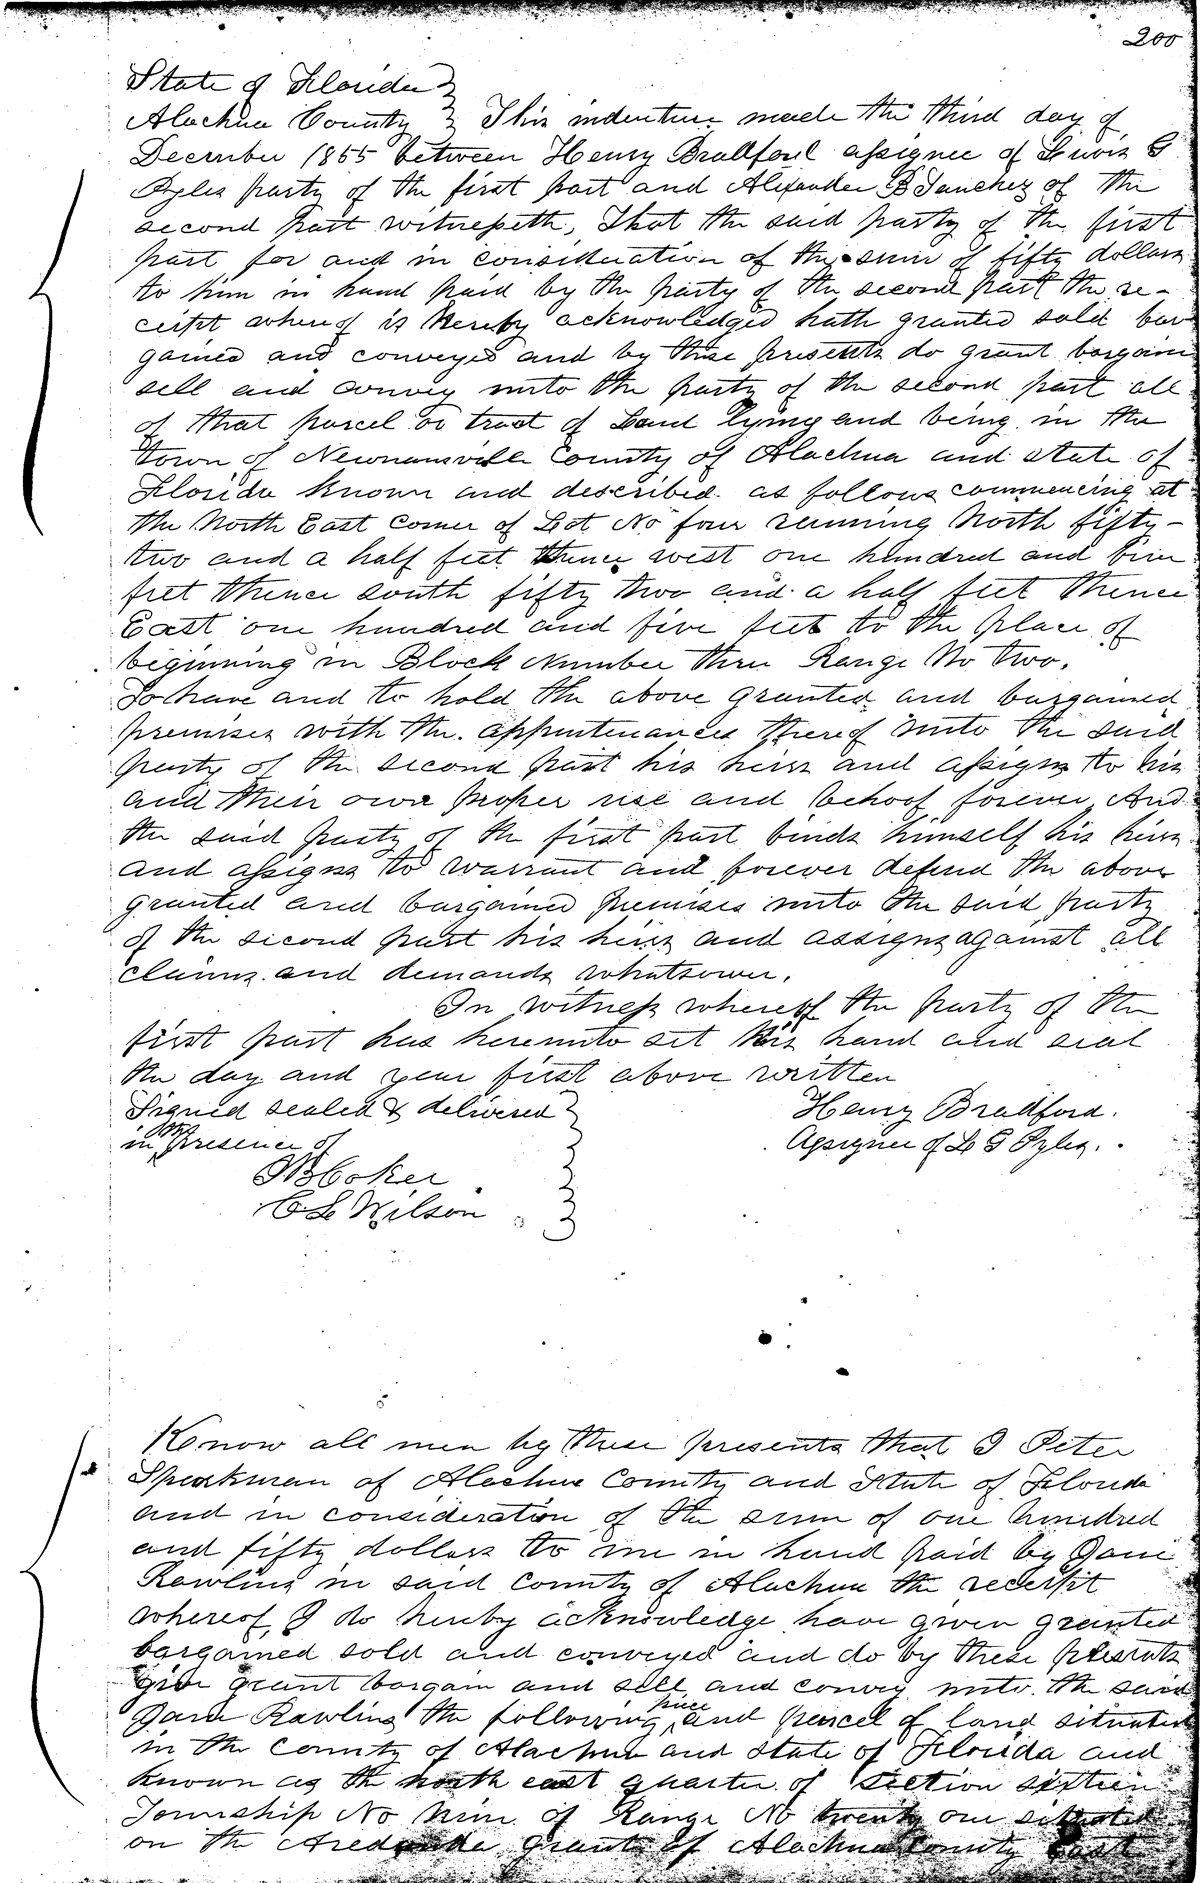 200
State of Florida
Alachua County } This indenture made the third day of
December 1855 between Henry Bradford assignee of Lewis G
Pyles party of the first part and Alexander B Sanchez of the
second part witnesseth, That the said party of the first
part for and in consideration of the sum of fifty dollars
to him in hand paid by the party of the second part the re-
ceipt whereof is hereby acknowledged hath granted sold bar
gained and conveyed and by these presents do grant bargain
sell and convey unto the party of the second part all
of that parcel or tract of Land lying and being in the
town of Newnansville County of Alachua and state of
Florida known and described as follows commencing at
the North East corner of Lot No four running North fifty-
two and a half feet thence west one hundred and five
feet thence south fifty two and a half feet thence
East one hundred and five feet to the place of
beginning in Block Number three Range No two.
To have and to hold the above granted and bargained
premises with the appurtenances thereof unto the said
party of the second part his heirs and assigns to his
and their own proper use and behoof forever And
the said party of the first part binds himself his heirs
and assigns to warrant and forever defend the above
granted and bargained premises unto the said party
of the second part his heirs and assigns against all
claims and demands whatsoever.
In witness whereof the party of the
first part has hereunto set his hand and seal
the day and year first above written
Signed sealed & delivered Henry Bradford.
in the presence of Assignee of L G Pyles.
Coker
C L Wilson
Know all men by these presents that I Peter
Speakman of Alachua County and State of Florida
and in consideration of the sum of one hundred
and fifty dollars to me in hand paid by Jane
Rawlins in said County of Alachua the receipt
whereof I do hereby acknowledge have given granted
bargained sold and conveyed and do by these presents
give grant bargain and sell and convey unto the said
Jane Rawlins the following piece and parcel of land situated
in the County of Alachua and state of Florida and
known as the north east quarter of section sixteen
Township No Nine of Range No twenty one situated
on the Aredondo grant of Alachua County East